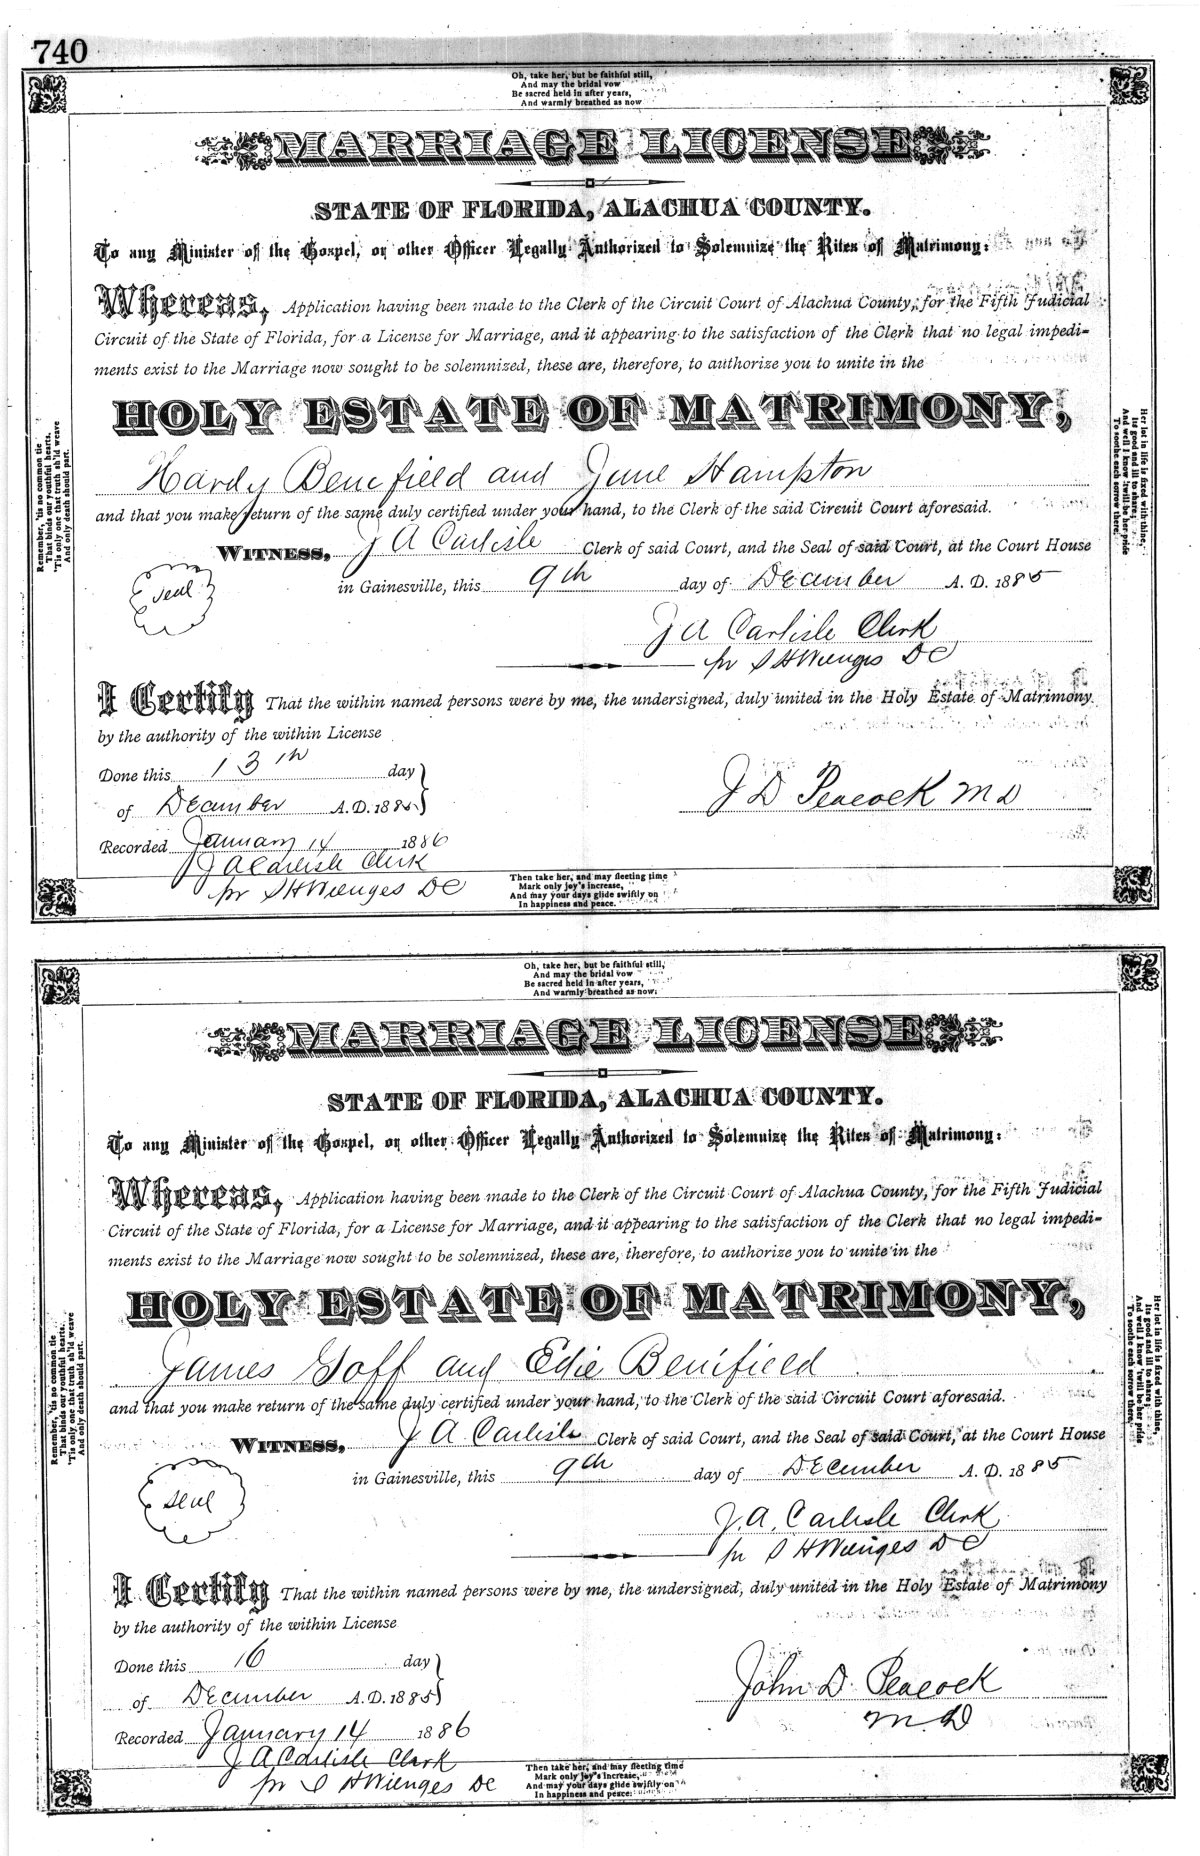 740
Oh, take her, but be faithful still,
And may the bridal vow
Be sacred held in after years,
And warmly breathed as now
MARRIAGE LICENSE
STATE OF FLORIDA, ALACHUA COUNTY.
To any Minister of the Gospel, or other Officer Legally Authorized to Solemnize the Rites of Matrimony:
Whereas, Application having been made to the Clerk of the Circuit Court of Alachua County, for the Fifth Judicial
Circuit of the State of Florida, for a License for Marriage, and it appearing to the satisfaction of the Clerk that no legal impedi-
ments exist to the Marriage now sought to be solemnized, these are, therefore, to authorize you to unite in the
HOLY ESTATE OF MATRIMONY,
Hardy Benefield and June Hampton
and that you make return of the same duly certified under your hand, to the Clerk of the said Circuit Court aforesaid.
WITNESS, J A Carlisle Clerk of said Court, and the Seal of said Court, at the Court House
Seal
in Gainesville, this 9th day of December A. D. 1885
J A Carlisle Clerk
pr S H Wienges DC
I Certify That the within named persons were by me, the undersigned, duly united in the Holy Estate of Matrimony
by the authority of the within License
Done this 13th day
of December A.D. 1885
J D Peacock M D
Recorded January 14 1886
J A Carlisle Clerk
pr S H Wienges DC
Then take her, and may fleeting time
Mark only joy's increase,
And may your days glide swiftly on
In happiness and peace.
Remember, 'tis no common tie
That binds our youthful hearts,
'Tis only one that truth sh'ld weave
And only death should part.
Her lot in life is fixed with thine,
Its good and ill to share,
And well I know 'twill be her pride
To soothe each sorrow there.
Oh, take her, but be faithful still,
And may the bridal vow
Be sacred held in after years,
And warmly breathed as now.
MARRIAGE LICENSE
STATE OF FLORIDA, ALACHUA COUNTY.
To any Minister of the Gospel, or other Officer Legally Authorized to Solemnize the Rites of Matrimony:
Whereas, Application having been made to the Clerk of the Circuit Court of Alachua County, for the Fifth Judicial
Circuit of the State of Florida, for a License for Marriage, and it appearing to the satisfaction of the Clerk that no legal impedi-
ments exist to the Marriage now sought to be solemnized, these are, therefore, to authorize you to unite in the
HOLY ESTATE OF MATRIMONY,
James Goff and Edie Benifield
and that you make return of the same duly certified under your hand, to the Clerk of the said Circuit Court aforesaid.
WITNESS, J A Carlisle Clerk of said Court, and the Seal of said Court, at the Court House
Seal
in Gainesville, this 9th day of December A. D. 1885
J. A. Carlisle Clerk
pr S H Wienges DC
I Certify That the within named persons were by me, the undersigned, duly united in the Holy Estate of Matrimony
by the authority of the within License
Done this 16 day
of December A.D. 1885
John D. Peacock
M. D
Recorded January 14 1886
J A Carlisle Clerk
pr S H Wienges DC
Then take her, and may fleeting time
Mark only joy's increase,
And may your days glide swiftly on
In happiness and peace.
Remember, 'tis no common tie
That binds our youthful hearts,
'Tis only one that truth sh'ld weave
And only death should part.
Her lot in life is fixed with thine,
Its good and ill to share,
And well I know 'twill be her pride
To soothe each sorrow there.